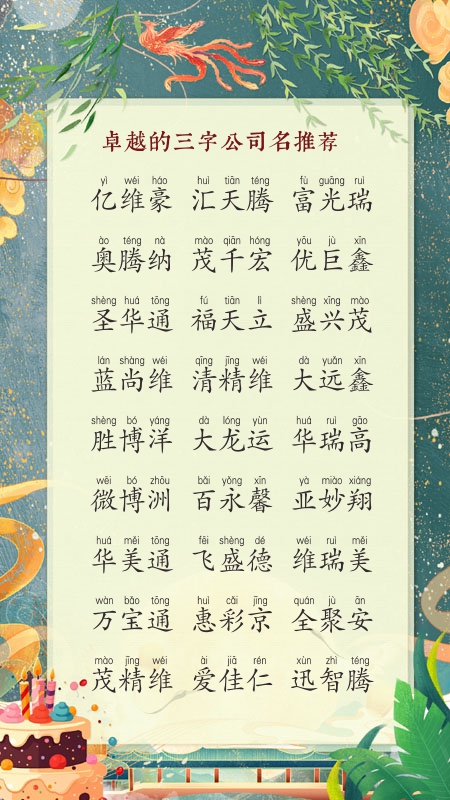 卓越的三字公司名推荐
yì wéi háo huì tiān téng fù guāng ruì
亿维豪 汇天腾 富光瑞
ào téng nà mào qiān hóng yōu jù xīn
奥腾纳 茂千宏 优巨鑫
shèng huá tōng fú tiān lì shèng xīng mào
圣华通 福天立 盛兴茂
lán shàng wéi qīng jīng wéi dà yuǎn xīn
蓝尚维 清精维 大远鑫
shèng bó yáng dà lóng yùn huá ruì gāo
胜博洋 大龙运 华瑞高
wēi bó zhōu bǎi yǒng xīn yà miào xiáng
微博洲 百永馨 亚妙翔
huá měi tōng fēi shèng dé wéi ruì měi
华美通 飞盛德 维瑞美
wàn bǎo tōng huì cǎi jīng quán jù ān
万宝通 惠彩京 全聚安
mào jīng wéi ài jiā rén xùn zhì téng
茂精维 爱佳仁 迅智腾